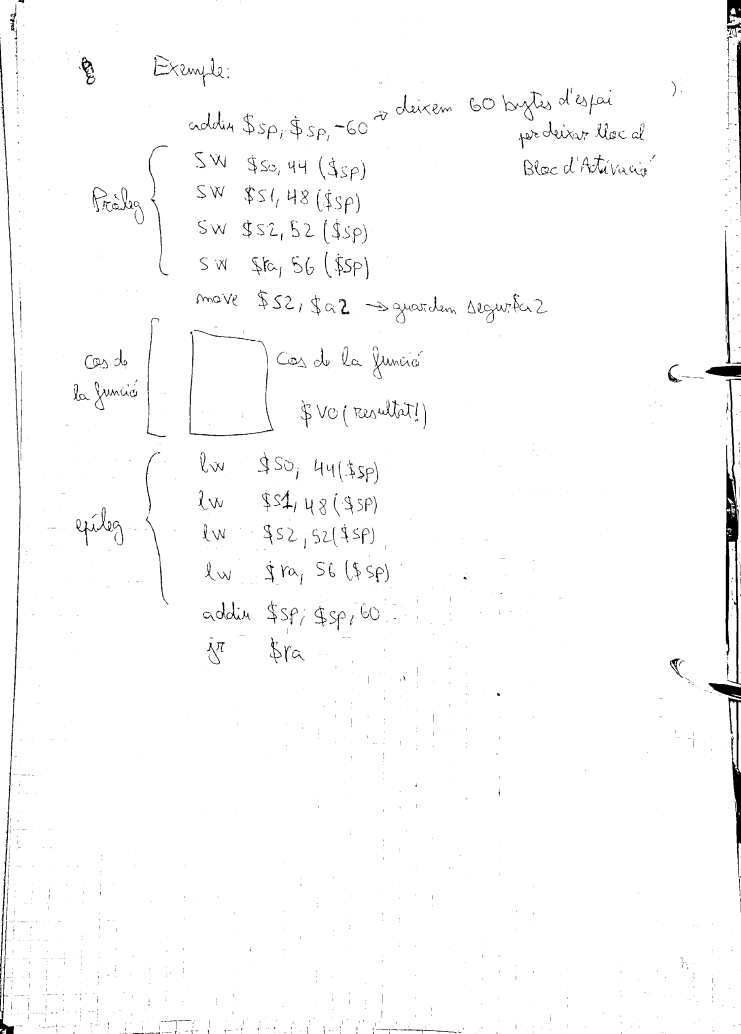 Exemple:
addiu $sp, $sp, -60 → deixem 60 bytes d'espai
per deixar lloc al
Bloc d'Activació
).
Pròleg
sw $s0, 44 ($sp)
sw $s1, 48 ($sp)
sw $s2, 52 ($sp)
sw $ra, 56 ($sp)
move $s2, $a2 → guardem
cos de
la funció
cos de la funció
$v0 (resultat!)
epíleg
lw $s0, 44($sp)
lw $s1, 48 ($sp)
lw $s2, 52($sp)
lw $ra, 56 ($sp)
addiu $sp, $sp, 60
jr $ra